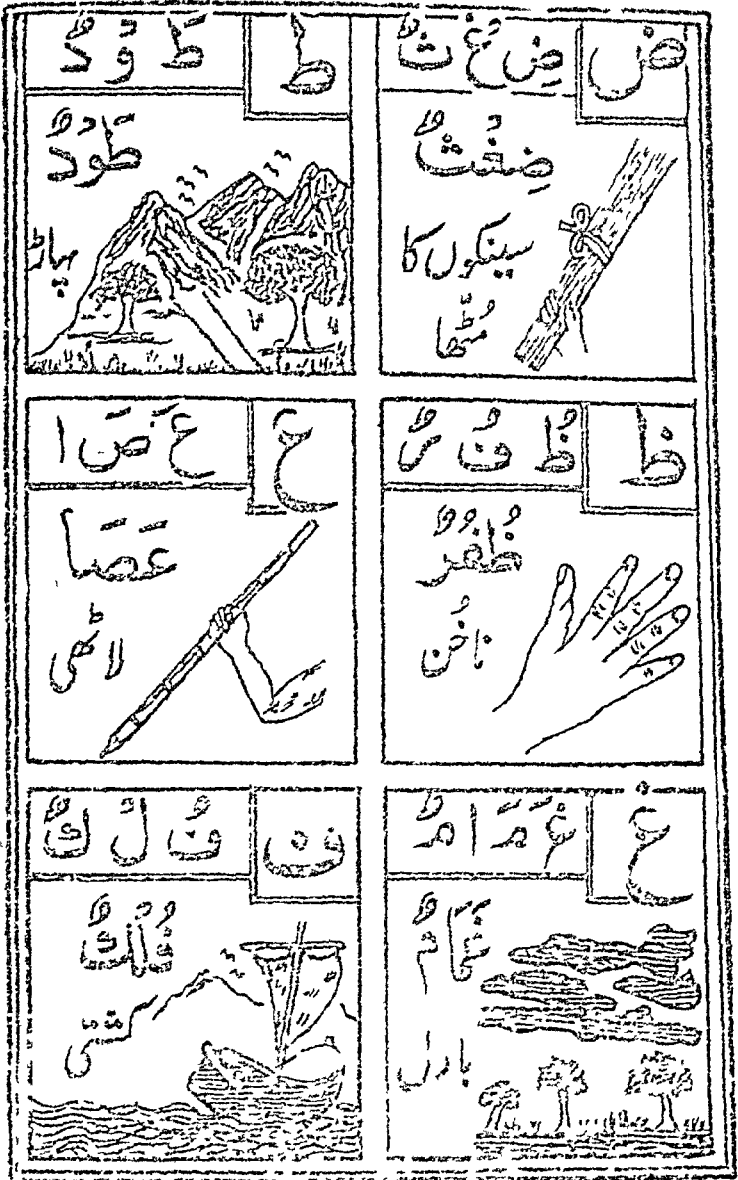 ض
ضِ غْ ثٌ
ضِغْثٌ
سینکوں کا
مُٹّھا
ط
طَ وْ دٌ
طَوْدٌ
پہاڑ
ظ
ظُ فُ رٌ
ظُفُرٌ
ناخُن
ع
عَ صَ ا
عَصَا
لاٹھی
غ
غَ مَ ا مٌ
غَمَامٌ
بادل
ف
فُ لْ كٌ
فُلْكٌ
کشتی